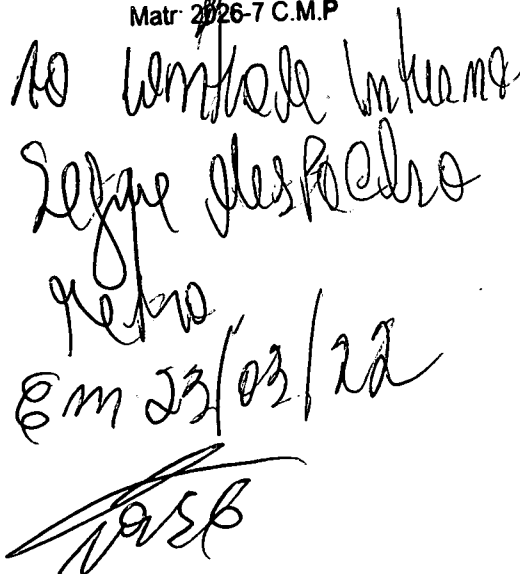 Matr 2026-7 C.M.P
Ao Controle Interno.
Segue despacho
retro
Em 23/03/22